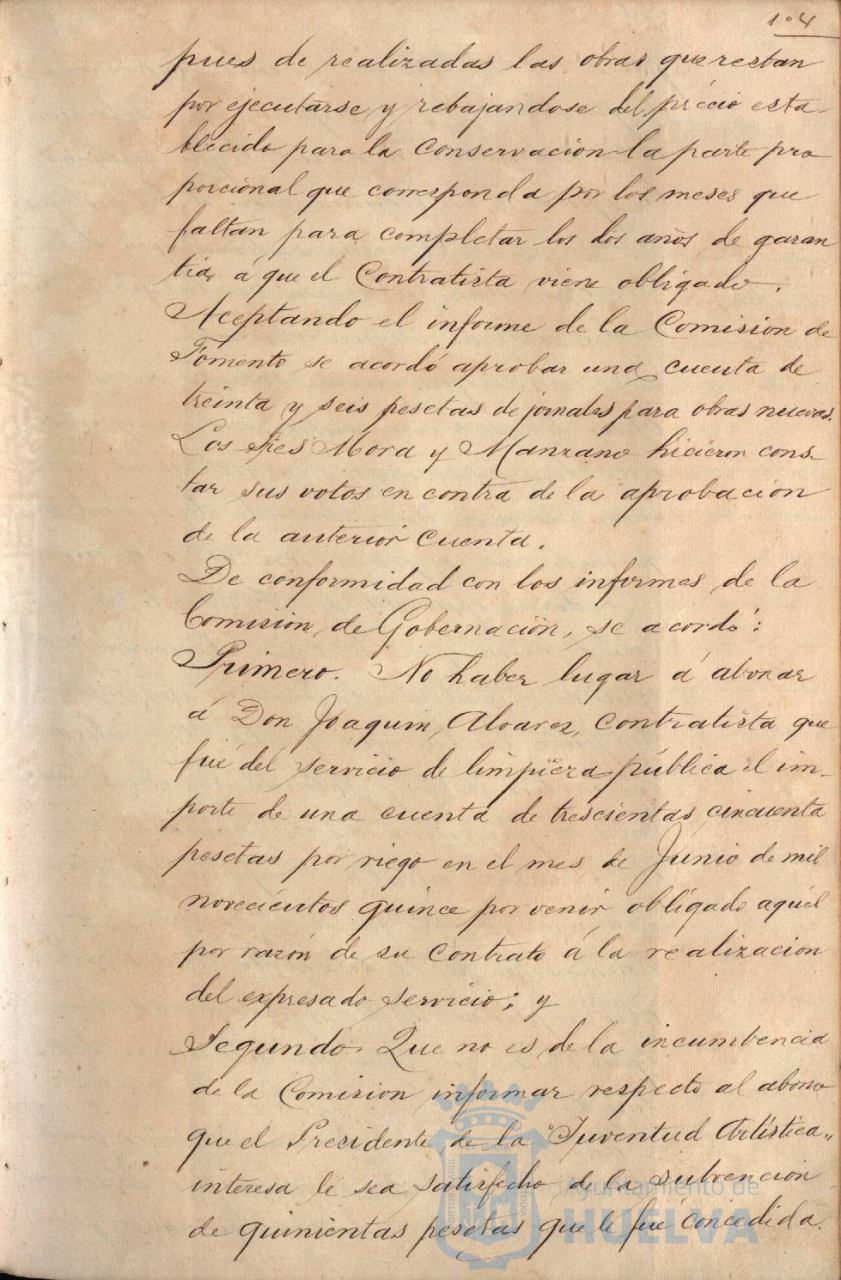 104
pues de realizadas las obras que restan
por ejecutarse y rebajandose del précio esta-
blecido para la conservación la parte pro
porcional que corresponda por los meses que
faltan para completar los dos años de garan
tia, á que el Contratista viene obligado.
Aceptando el informe de la Comision de
Fomento se acordó aprobar una cuenta de
treinta y seis pesetas de jornales para obras nuevas.
Los Sres Mora y Manzano hicieron cons-
tar sus votos en contra de la aprobación
de la anterior cuenta.
De conformidad con los informes de la
Comisión de Gobernación, se acordó:
Primero. No haber lugar á abonar
á Don Joaquin Alvarez, contratista que
fué del servicio de limpieza pública el im-
porte de una cuenta de trescientas cincuenta
pesetas por riego en el mes de Junio de mil
novecientos quince por venir obligado aquél
por razón de su contrato á la realizacion
del expresado servicio; y
Segundo. Que no es de la incumbencia
de la Comision informar respecto al abono
que el Presidente de la "Juventud Artística"
interesa le sea satisfecho de la subvención
de quinientas pesetas que le fué concedida.
Ayuntamiento de
HUELVA